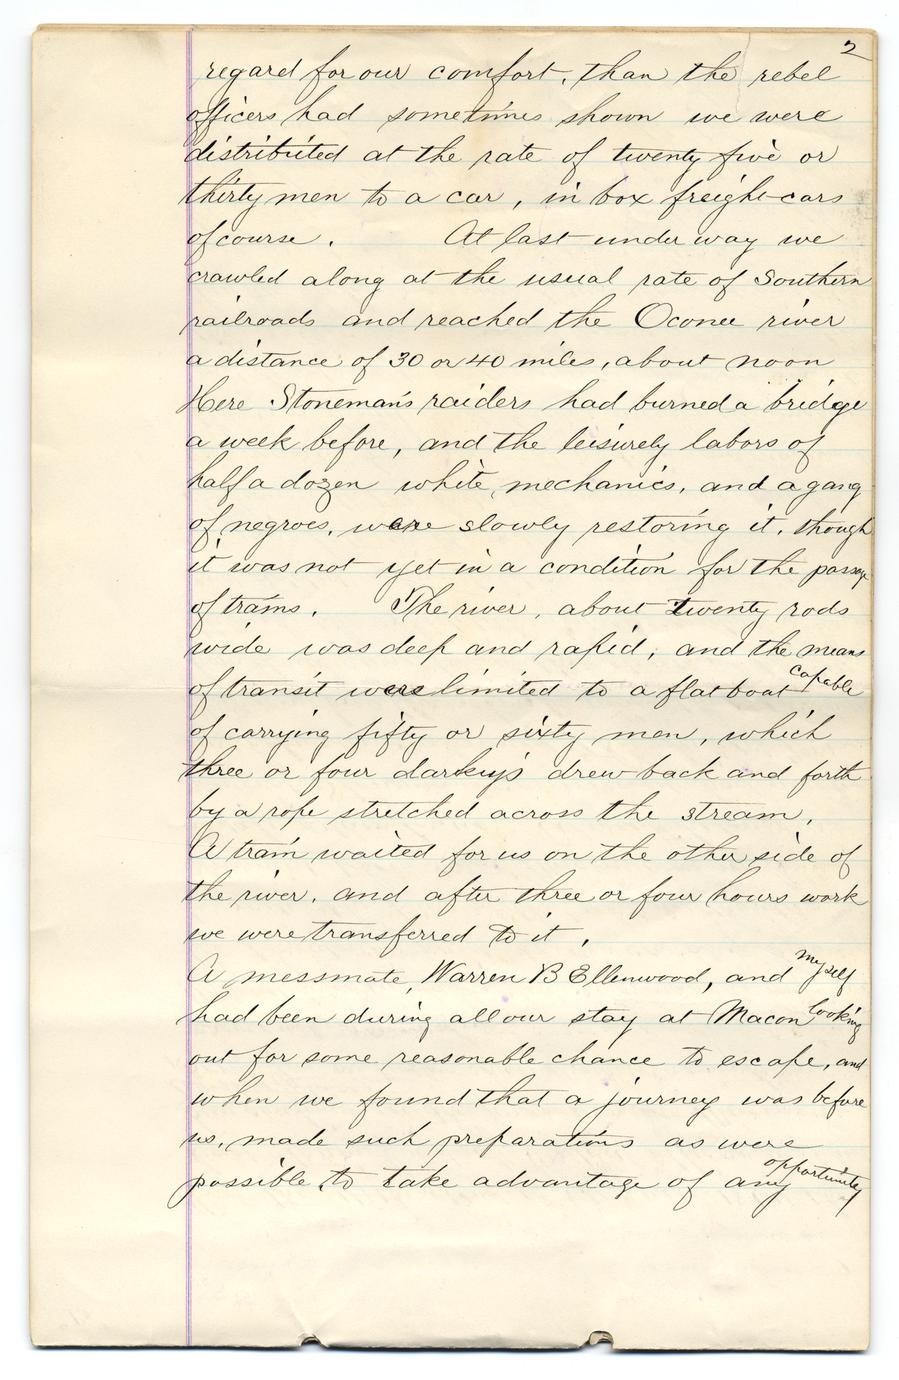 2
regard for our comfort, than the rebel
officers had sometimes shown we were
distributed at the rate of twenty five or
thirty men to a car, in box freight cars
of course. At last under way we
crawled along at the usual rate of Southern
railroads and reached the Oconee river
a distance of 30 or 40 miles, about noon
Here Stoneman's raiders had burned a bridge
a week before, and the leisurely labors of
half a dozen white, mechanics, and a gang
of negroes, were slowly restoring it, though
it was not yet in a condition for the passage
of trains. The river, about twenty rods
wide was deep and rapid, and the means
of transit were limited to a flat boat capable
of carrying fifty or sixty men, which
three or four darkey's drew back and forth
by a rope stretched across the stream.
A train waited for us on the other side of
the river, and after three or four hours work
we were transferred to it.
A messmate, Warren B Ellenwood, and myself
had been during all our stay at Macon looking
out for some reasonable chance to escape, and
when we found that a journey was before
us, made such preparations as were
possible to take advantage of any opportunity